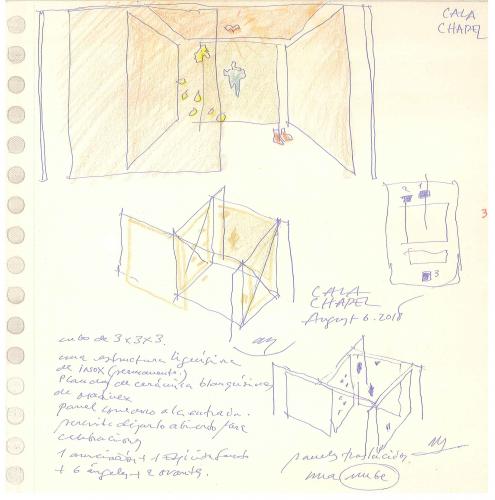 CALA
CHAPEL
2 1
3
3
CALA
CHAPEL
August 6. 2018
cubo de 3x3x3.
una estructura ligerísima
de inox (permanente.)
Placas de cerámica blanquísima
de
panel corredero a la entrada.
permite dejarlo abierto para
celebraciones
1 anunciación + 1 Espíritu Santo
+ 6 ángeles + 2 orantes.
paneles traslúcidos
una nube